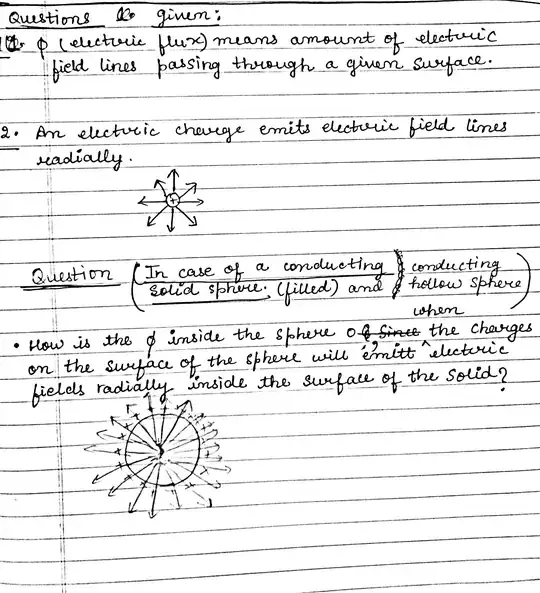 Questions given:
1. φ (electric flux) means amount of electric
field lines passing through a given surface.
2. An electric charge emits electric field lines
radially.
+
Question (In case of a conducting
solid sphere. (filled) and
conducting
hollow sphere)
when
• How is the φ inside the sphere 0 Since the charges
on the surface of the sphere will 'emitt' electric
fields radially inside the surface of the solid?